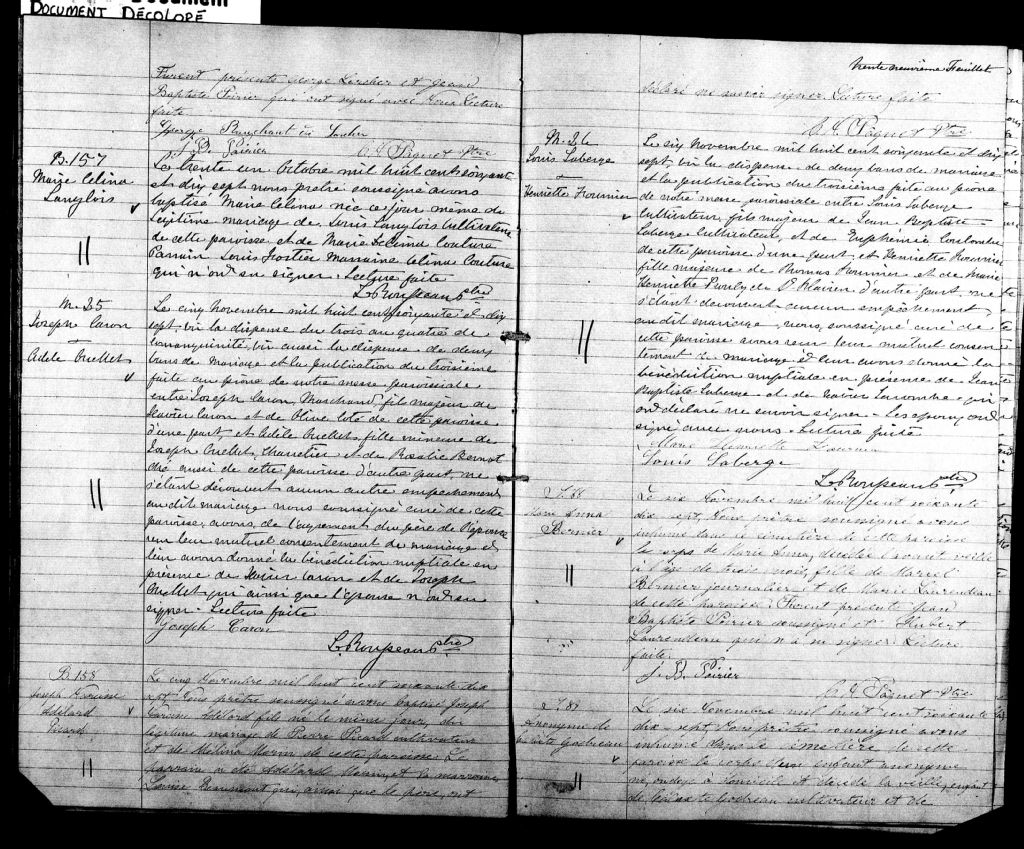 Document
DOCUMENT DÉCOLORÉ
Furent présents George Lercher et Jean
Baptiste Poirier qui ont signé avec nous. Lecture
faite
George Blanchard
J. B. Poirier C. A. Paquet Ptre
B. 157
Marie Celina
Langlois
Le trente un Octobre mil huit cent soixante
et dix sept nous prêtre soussigné avons
baptisé Marie Celina née ce jour même du
légitime mariage de Louis Langlois Cultivateur
de cette paroisse et de Marie Couture
Parrain Louis Fortier Marraine Celina Couture
qui n'ont su signer. Lecture faite
L. Rousseau ptre
M. 25
Joseph Caron
Adèle Ouellet
Le cinq Novembre mil huit cent soixante et dix
sept, vu la dispense du trois au quatre de
consanguinité, vu aussi la dispense de deux
bans de mariage et la publication du troisième
faite au prône de notre messe paroissiale
entre Joseph Caron, Marchand, fils majeur de
Xavier Caron et de Olive Coté de cette paroisse
d'une part, et Adèle Ouellet, fille mineure de
Joseph Ouellet, et de Rosalie
aussi de cette paroisse d'autre part, ne
s'étant découvert aucun autre empêchement
au dit mariage nous soussigné curé de cette
paroisse, avons, de l'agrément du père de l'épouse
reçu leur mutuel consentement de mariage et
leur avons donné la bénédiction nuptiale en
présence de Xavier Caron et de Joseph
Ouellet qui ainsi que l'épouse n'ont su
signer. Lecture faite
Joseph Caron
L. Rousseau ptre
B. 158
Joseph
Adélard
Picard
Le cinq Novembre mil huit cent soixante dix
sept Nous prêtre soussigné avons baptisé Joseph
Adélard fils né le même jour, du
légitime mariage de Pierre Picard cultivateur
et de Melina Morin de cette paroisse. Le
parrain a été Adélard et la marraine
Louise Beaumont qui, ainsi que le père, ont
trente neuvième Feuillet
déclaré ne savoir signer. Lecture faite
C. A. Paquet Ptre
M. 26
Louis Laberge
Henriette Fournier
Le six Novembre mil huit cent soixante et dix
sept, vu la dispense de deux bans de mariage
et la publication du troisième faite au prône
de notre messe paroissiale entre Louis Laberge
Cultivateur, fils majeur de Jean Baptiste
Laberge Cultivateur, et de Euphémie Coulombe
de cette paroisse d'une part, et Henriette Fournier
fille majeure de Thomas Fournier et de Marie
Henriette de St Flavien d'autre part, ne
s'étant découvert aucun empêchement
au dit mariage, nous, soussigné curé de
cette paroisse avons reçu leur mutuel consen-
tement de mariage et leur avons donné la
bénédiction nuptiale en présence de Jean
Baptiste Laberge et de Xavier qui
ont déclaré ne savoir signer. Les époux ont
signé avec nous. Lecture faite
Marie Henriette Fournier
Louis Laberge
L. Rousseau ptre
S. 88
Marie Anna
Bernier
Le six Novembre mil huit cent soixante
dix sept, Nous prêtre soussigné avons
inhumé dans le cimetière de cette paroisse
le corps de Marie Anna, décédée l'avant veille
à l'âge de trois mois, fille de Marcel
Bernier journalier et de Marie Laurendeau
de cette paroisse. Furent présents Jean
Baptiste Poirier soussigné et Hubert
Laurendeau qui n'a su signer. Lecture
faite.
J. B. Poirier
C. A. Paquet Ptre
S. 89
Anonyme de
Godreau
Le six Novembre mil huit cent soixante
dix sept, Nous prêtre soussigné avons
inhumé dans le cimetière de cette
paroisse le corps d'un enfant anonyme
né, ondoyé à domicile et décédé la veille, enfant
de Godreau cultivateur et de